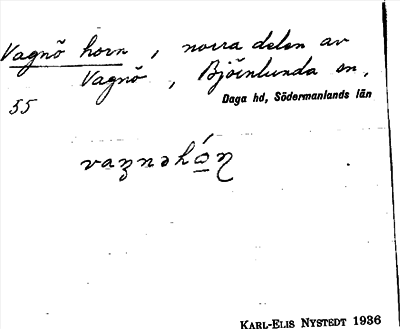 Vagnö horn, norra delen av
Vagnö, Björnlunda sn,
55
Daga hd, Södermanlands län
KARL-ELIS NYSTEDT 1936